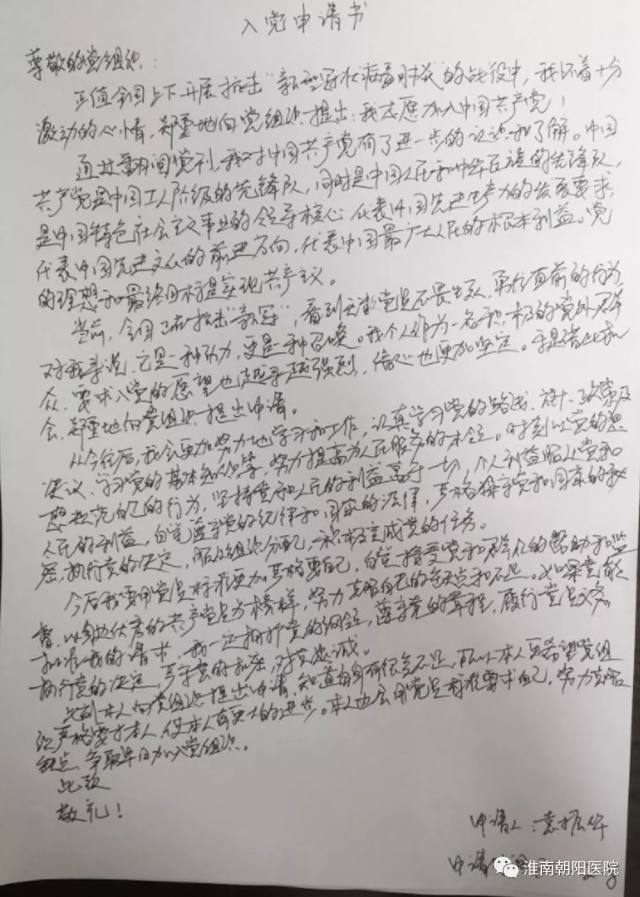 入党申请书
尊敬的党组织：
正值全国上下开展抗击"新型冠状病毒肺炎"的战役中，我怀着十分
激动的心情，郑重地向党组织提出：我志愿加入中国共产党！
通过翻阅党刊，我对中国共产党有了进一步的认识和了解。中国
共产党是中国工人阶级的先锋队，同时是中国人民和中华民族的先锋队，
是中国特色社会主义事业的领导核心，代表中国先进生产力的发展要求，
代表中国先进文化的前进方向，代表中国最广大人民的根本利益。党
的理想和最终目标是实现共产主义。
当前，全国正在抗击"新冠"，看到无数党员不畏生死，勇往直前的行为
对我来说，它是一种动力，更是一种召唤。我个人作为一名积极的党外群
众，要求入党的愿望也越来越强烈，信心也更加坚定。于是借此机
会，郑重地向党组织提出申请。
从今往后，我会更加努力地学习和工作，认真学习党的路线、
决议，学习党的基本知识等，努力提高为人民服务的本领。时刻以党的思
想规范自己的行为，坚持党和人民的利益高于一切，个人利益服从党和
人民的利益，自觉遵守党的纪律和国家的法律，严格保守党和国家的秘
密，执行党的决定，服从组织分配，积极完成党的任务。
今后我要用党员标准更加严格要求自己，自觉接受党和群众的帮助和监
督，以身边优秀的共产党员为榜样，努力克服自己的缺点和不足。如果党能
批准我的请求，我一定拥护党的纲领，遵守党的章程，履行党员义务，
执行党的决定，严守党的纪律，对党忠诚。
此刻本人向党组织提出申请，知道自身有很多不足，所以本人更希望党组
织严格要求本人，使本人有更大的进步。本人也会用党员标准要求自己，努力克服
缺点，争取早日加入党组织。
此致
敬礼！
申请人：袁振华
淮南朝阳医院